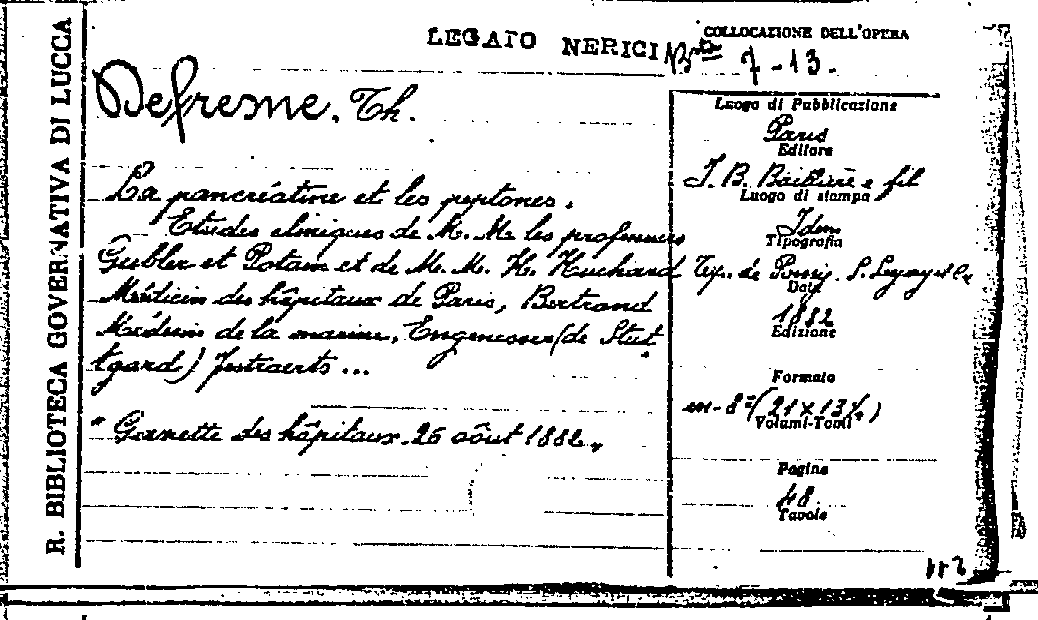 R. BIBLIOTECA GOVERNATIVA DI LUCCA
LEGATO NERICI
COLLOCAZIONE DELL'OPERA
7-13.
Defresme. Th.
La pancréatine et les peptones.
Etudes cliniques de M. M. les professeurs
Gubler et Potain et de M. M. H. Huchard
Médicin des hôpitaux de Paris, Bertrand
Médecin de la marine, Engenesser (de Stut
tgard) Jestraerts ...
" Gazette des hôpitaux. 26 aôut 1882 "
Luogo di Pubblicazione
Paris
Editore
J. B. Baillière e fil
Luogo di stampa
Idem
Tipografia
Typ. de Poissy. S. Lejay et C.
Data
1882
Edizione
Formato
in-8° (21 x 13 ½)
Volumi-Tomi
Pagine
48
Tavole